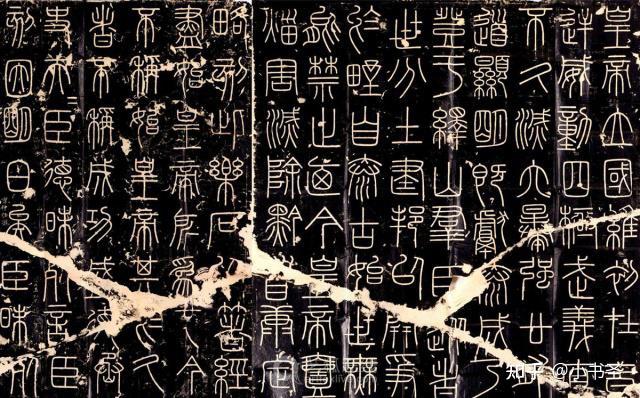 皇帝立國維初在昔
逆威動四極武義直
不久滅六暴強廿有
道顯明既獻泰成乃
登于繹山群臣從者
世分土建邦以開爭
於野自泰古始世無
能禁止廼今皇帝壹
災害滅除黔首康定
略刻此樂石以著經
盡始皇帝所為也今
不稱始皇帝其於久
者不稱成功盛德
史夫臣德昧死言臣
刻因明白矣臣昧死
知乎